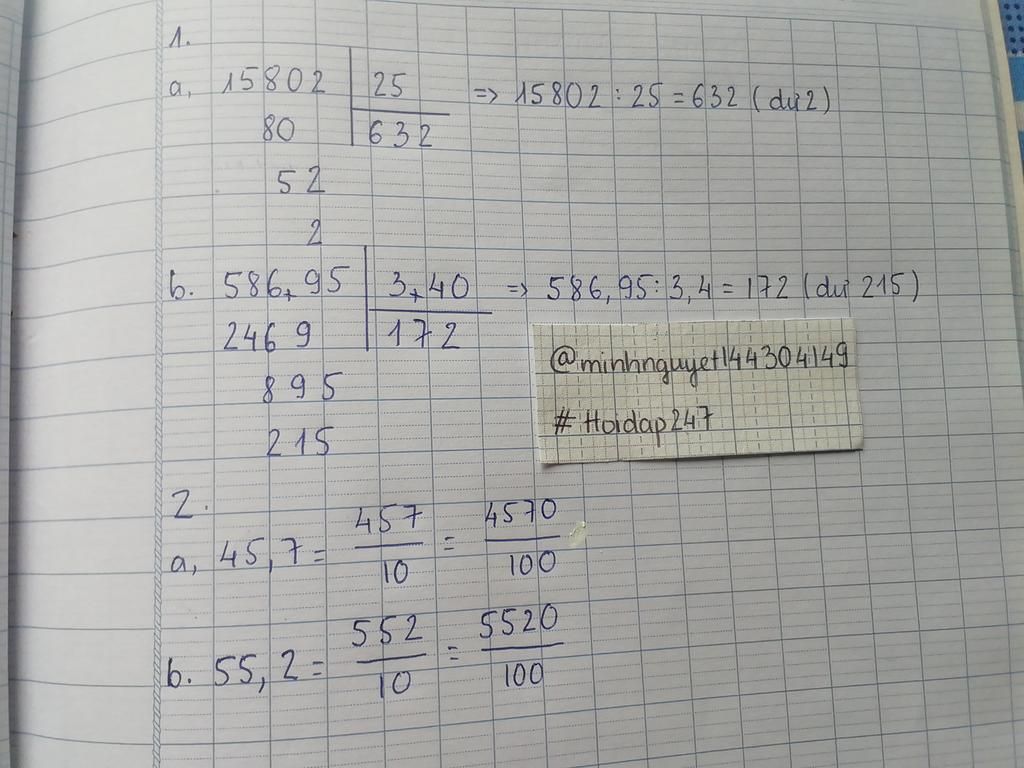 1.
a, 15802 | 25 => 15802 : 25 = 632 (dư 2)
80 | 632
52
2
b. 586,95 | 3,40 => 586,95 : 3,4 = 172 (dư 215)
2469 | 172
895
215
@minhnguyet144304149
# Hoidap247
2.
a, 45,7 = 457/10 = 4570/100
b. 55,2 = 552/10 = 5520/100